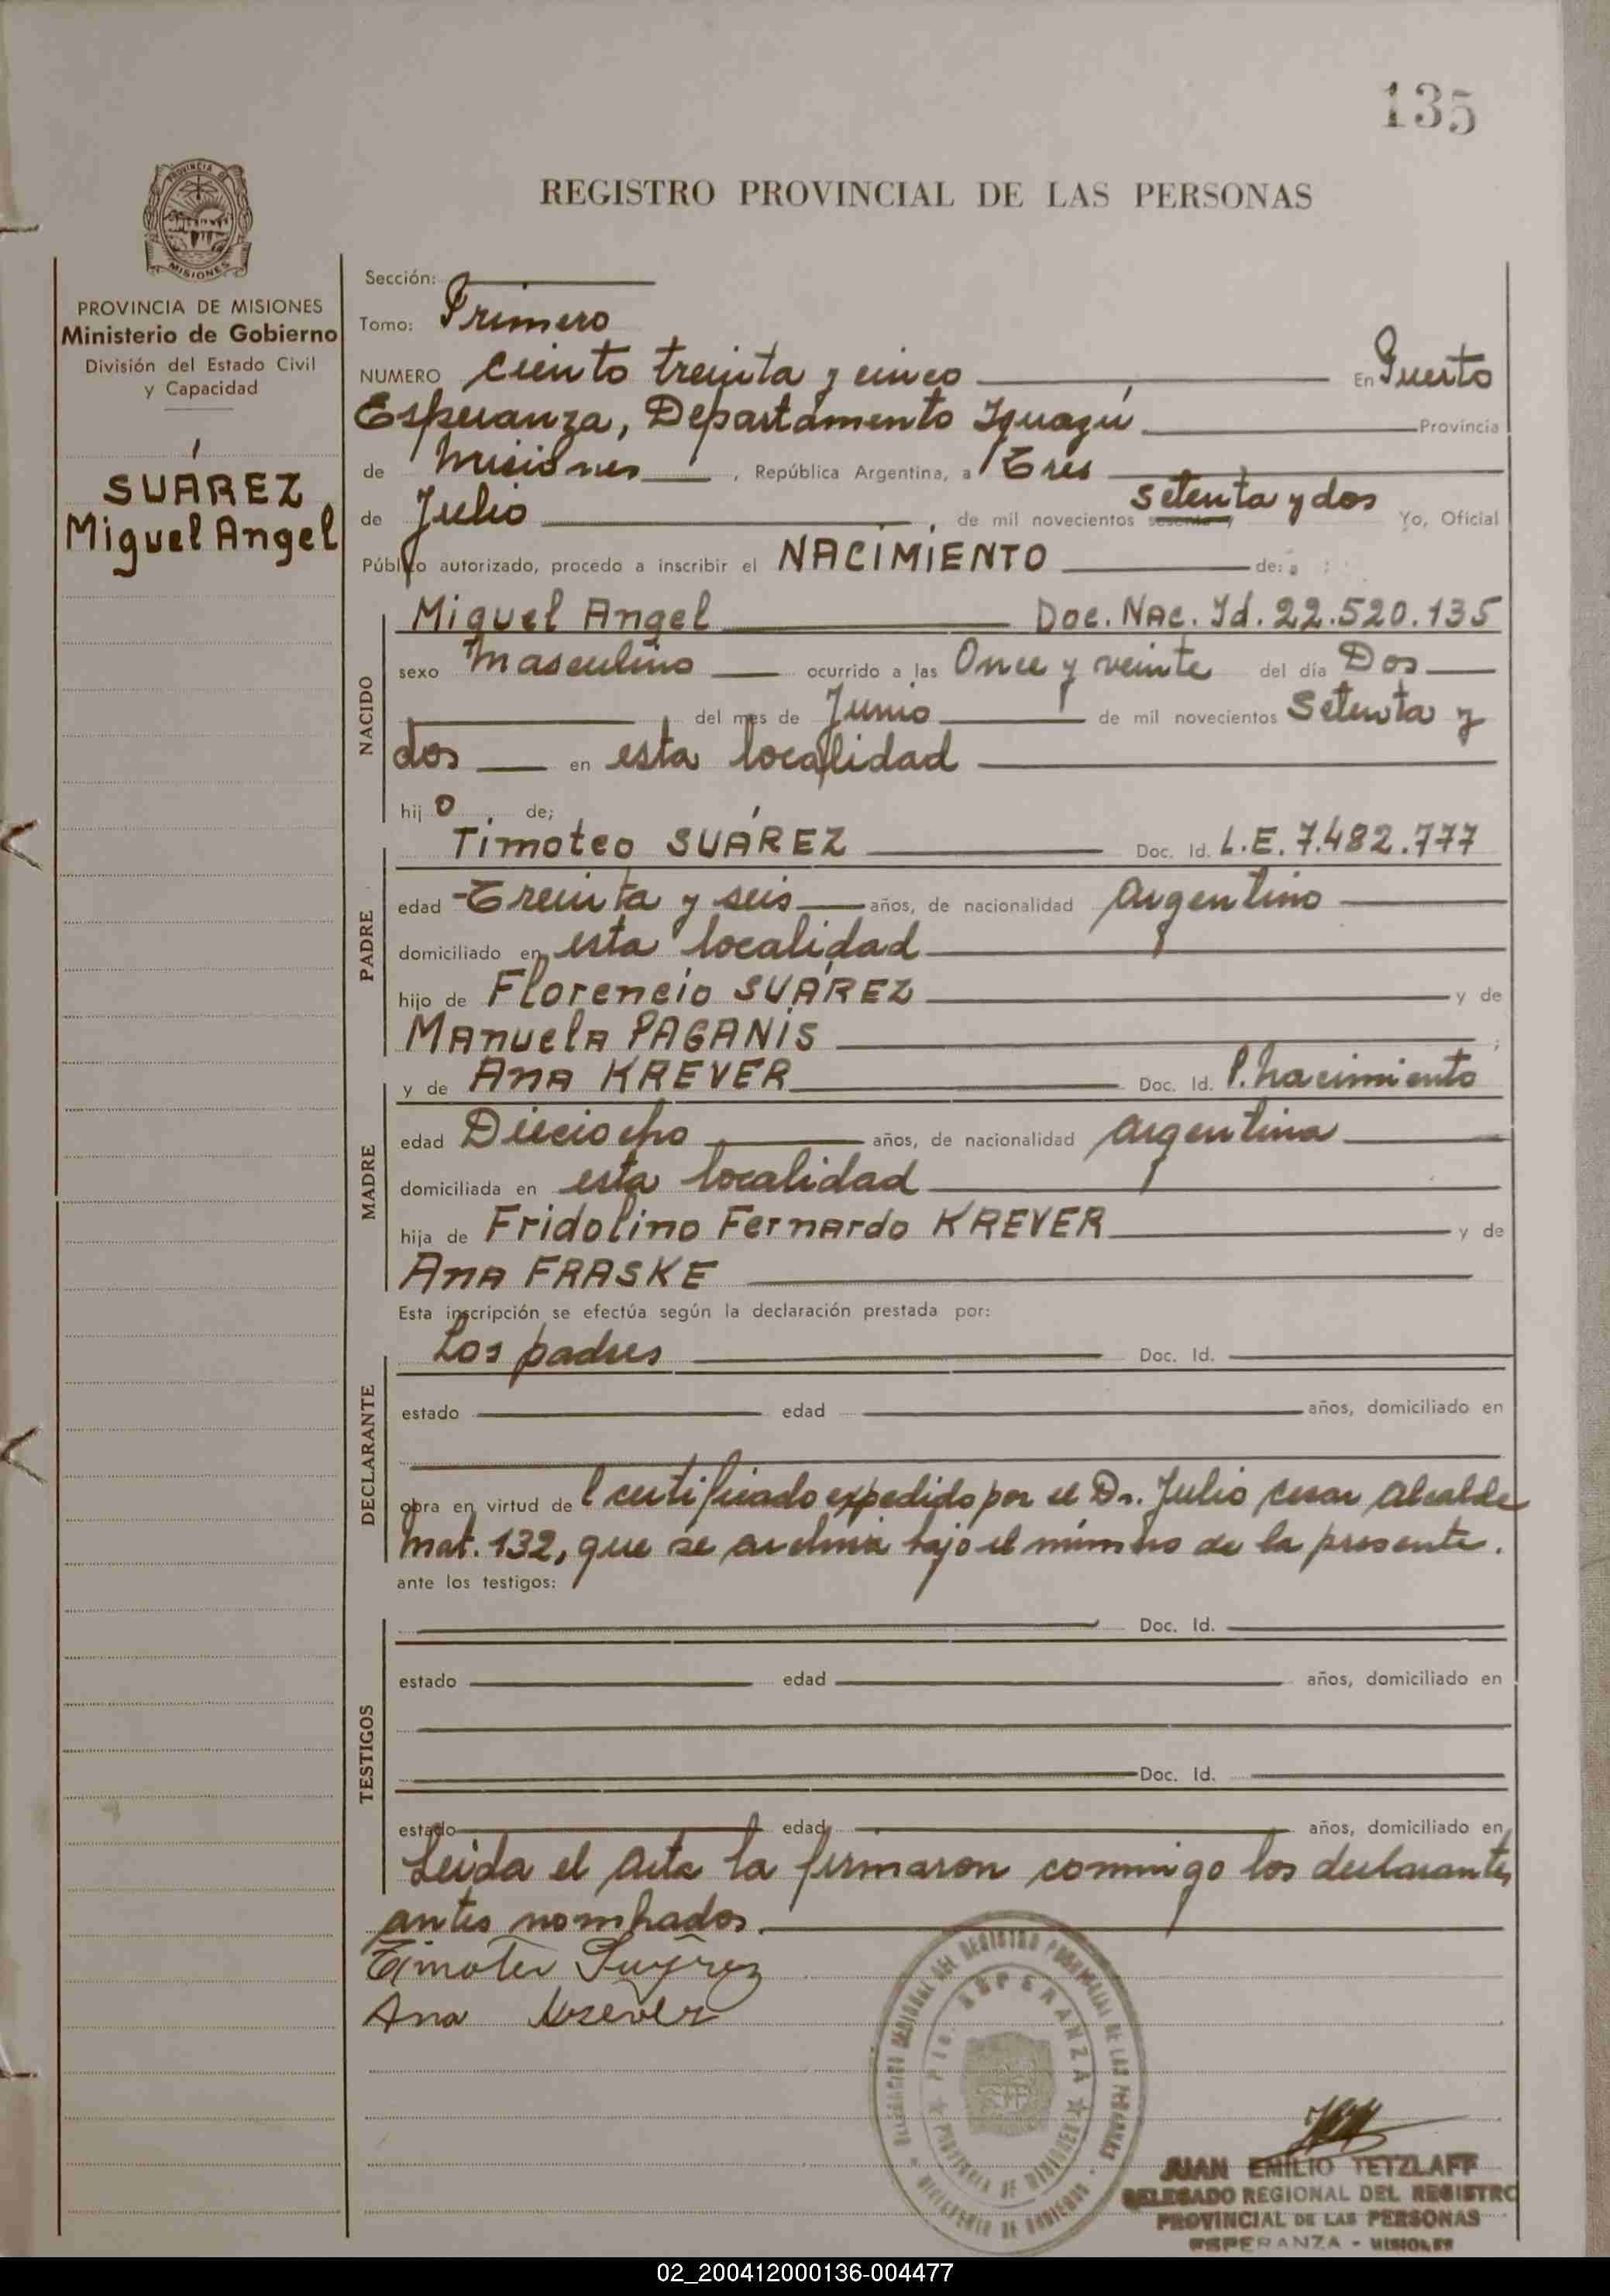 135
REGISTRO PROVINCIAL DE LAS PERSONAS
PROVINCIA DE MISIONES
PROVINCIA DE MISIONES
Ministerio de Gobierno
División del Estado Civil
y Capacidad
SUÁREZ
Miguel Angel
Sección:
Tomo: Primero
NUMERO Ciento treinta y cinco En Puerto
Esperanza, Departamento Iguazú Provincia
de Misiones, República Argentina, a Tres
de Julio, de mil novecientos sesenta y setenta y dos Yo, Oficial
Público autorizado, procedo a inscribir el NACIMIENTO de:
NACIDO
Miguel Angel Doc. NAC. Id. 22.520.135
sexo Masculino ocurrido a las Once y veinte del día Dos
del mes de Junio de mil novecientos Setenta y
dos en esta localidad
hijo de;
PADRE
Timoteo SUÁREZ Doc. Id. L.E. 7.482.777
edad Treinta y seis años, de nacionalidad Argentino
domiciliado en esta localidad
hijo de Florencio SUÁREZ y de
Manuela PAGANIS;
MADRE
y de Ana KREVER Doc. Id. P. nacimiento
edad Dieciocho años, de nacionalidad Argentina
domiciliada en esta localidad
hija de Fridolino Fernardo KREVER y de
Ana FRASKE
Esta inscripción se efectúa según la declaración prestada por:
DECLARANTE
Los padres Doc. Id.
estado edad años, domiciliado en
obra en virtud del certificado expedido por el Dr. Julio Cesar Alcalde
Mat. 132, que se archiva bajo el número de la presente.
ante los testigos:
TESTIGOS
Doc. Id.
estado edad años, domiciliado en
Doc. Id.
estado edad años, domiciliado en
Leida el Acta la firmaron conmigo los declarantes
antes nombrados.
Timoteo Suárez
Ana Krever
DELEGACION REGIONAL DEL REGISTRO PROVINCIAL DE LAS PERSONAS
PTO. ESPERANZA
PROVINCIA DE MISIONES
MINISTERIO DE GOBIERNO
JUAN EMILIO TETZLAFF
DELEGADO REGIONAL DEL REGISTRO
PROVINCIAL DE LAS PERSONAS
ESPERANZA - MISIONES
02_200412000136-004477